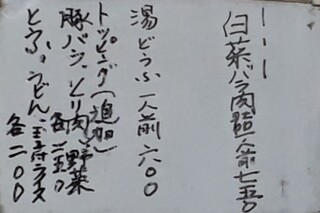 白菜バラ肉鍋一人前七五〇
湯どうふ一人前六〇〇
トッピング(追加)
豚バラ、とり肉、野菜
各二五〇
とうふ、うどん、玉子、ライス
各二〇〇